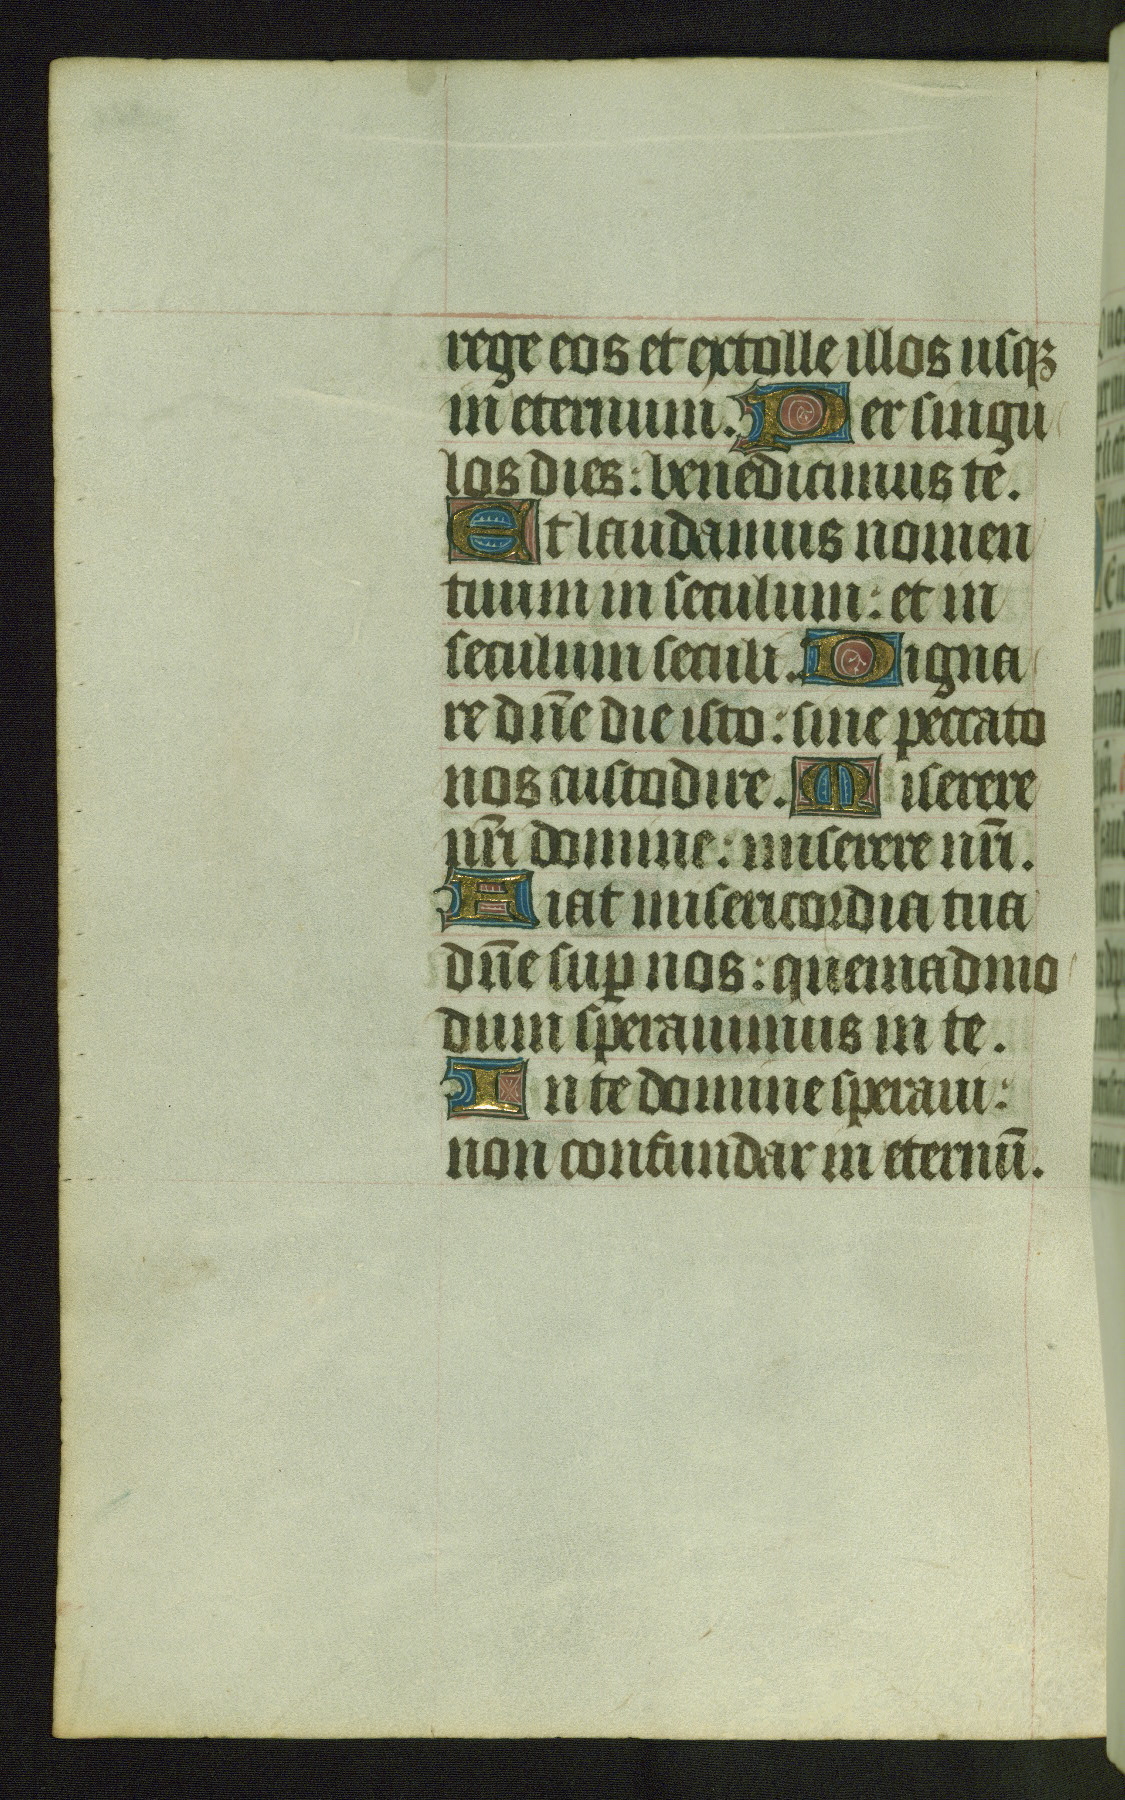 rege eos et extolle illos usqꝫ
in eternum. Per singu
los dies: benedicimus te.
Et laudamus nomen
tuum in seculum: et in
seculum seculi. Digna
re dn̄e die isto: sine peccato
nos custodire. Miserere
nr̄i domine: miserere nr̄i.
Fiat misericordia tua
dn̄e suꝑ nos: quemadmo
dum sperauimus in te.
In te domine speraui:
non confundar in eternū.